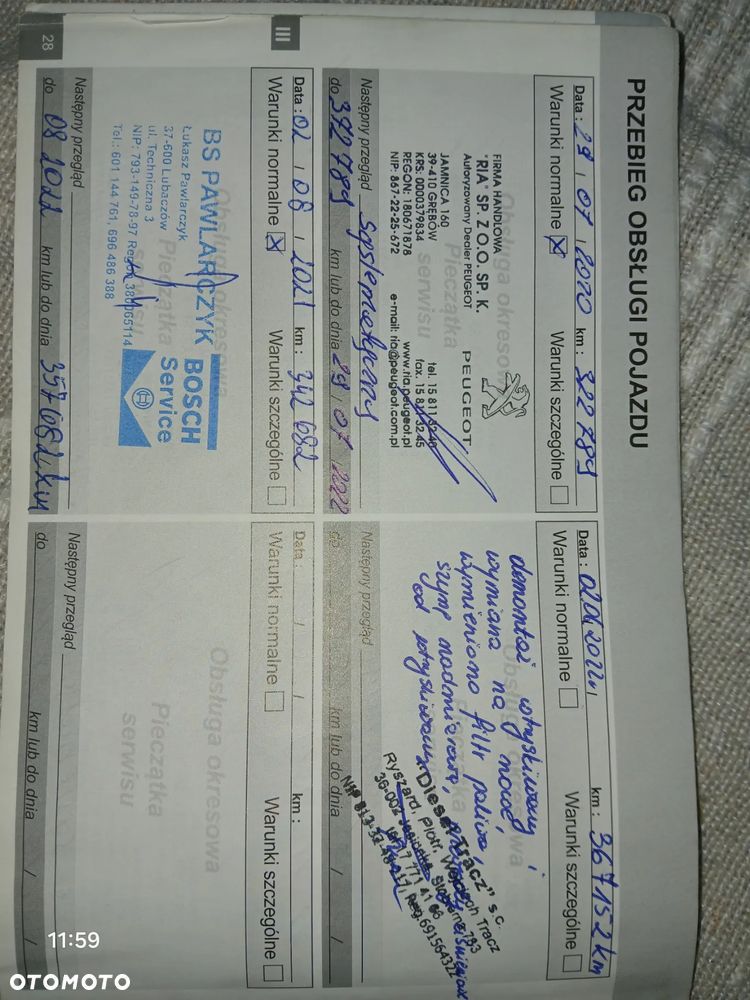 PRZEBIEG OBSŁUGI POJAZDU
Data : 29 / 07 / 2020 km : 322 789
Warunki normalne X Warunki szczególne
Obsługa okresowa
Pieczątka
serwisu
FIRMA HANDLOWA
"RIA" SP. Z O.O. SP. K.
Autoryzowany Dealer PEUGEOT
PEUGEOT
JAMNICA 160
39-410 GRĘBÓW
KRS: 0000379834
REGON: 180671878
NIP: 867-22-25-672
tel. 15 811 32 48
fax. 15 811 32 45
www.ria.peugeot.pl
e-mail: ria@peugeot.com.pl
Następny przegląd
do 372 789 km lub do dnia 29 / 07 / 2022
Data : 02 / 08 / 2021 km : 342 682
Warunki normalne X Warunki szczególne
Obsługa okresowa
Pieczątka
serwisu
BS PAWLARCZYK
Łukasz Pawlarczyk
37-600 Lubaczów
ul. Techniczna 3
NIP: 793-149-78-97
Tel.: 601 144 761, 696 486 388
BOSCH
Service
Następny przegląd
do 08 2022 km lub do dnia 357 682 km
Data : 02.04.2022 km : 367 152 km
Warunki normalne Warunki szczególne
Obsługa okresowa
demontaż wtryskiwaczy i
wymiana na nowe,
wymieniono filtr paliwa,
"Diesel Tracz" s.c.
Ryszard, Piotr, Wojciech Tracz
Następny przegląd
do km lub do dnia /
Data : / / km :
Warunki normalne Warunki szczególne
Obsługa okresowa
Pieczątka
serwisu
Następny przegląd
do km lub do dnia / /
III
28
11:59
OTOMOTO